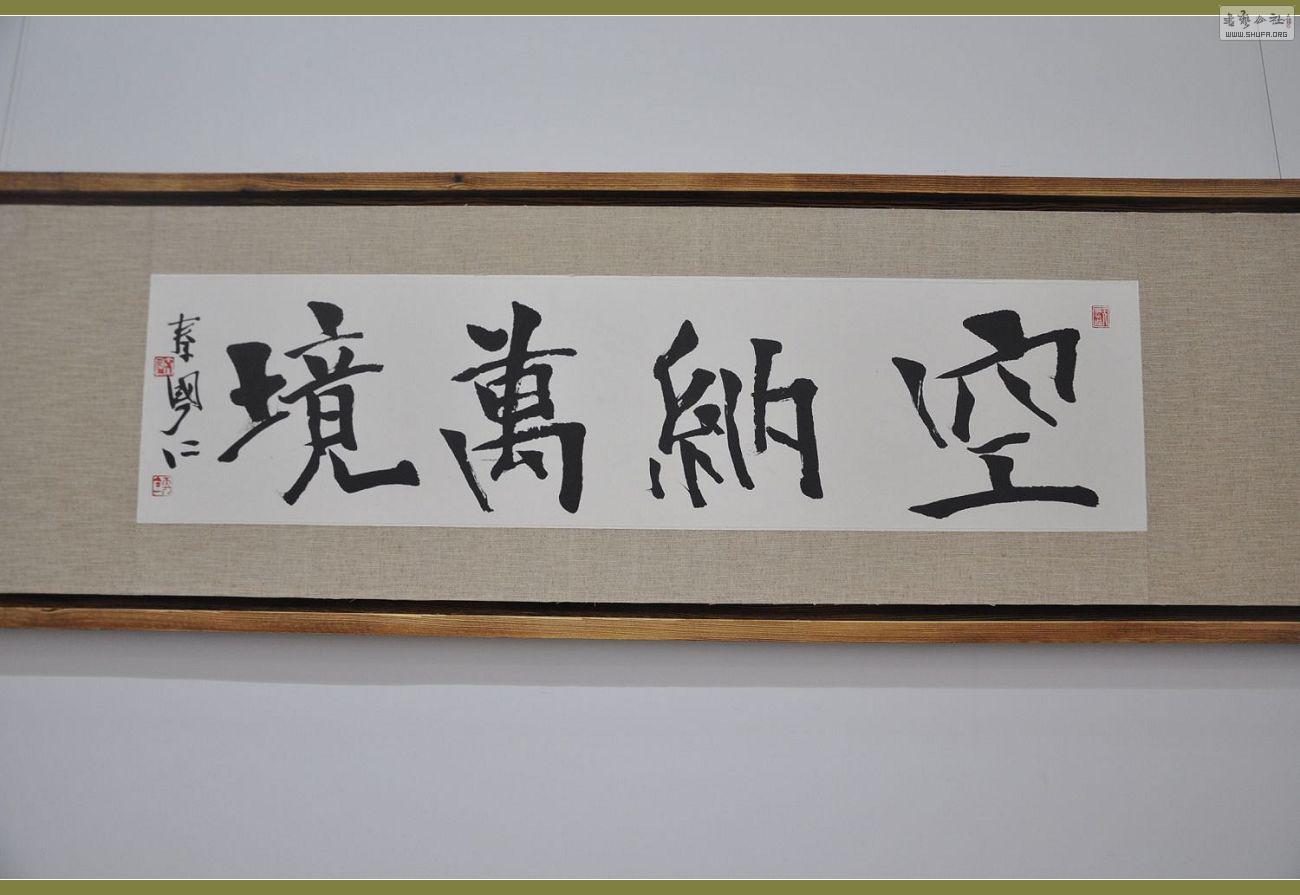 空納萬境
秦國仁
書藝公社
WWW.SHUFA.ORG